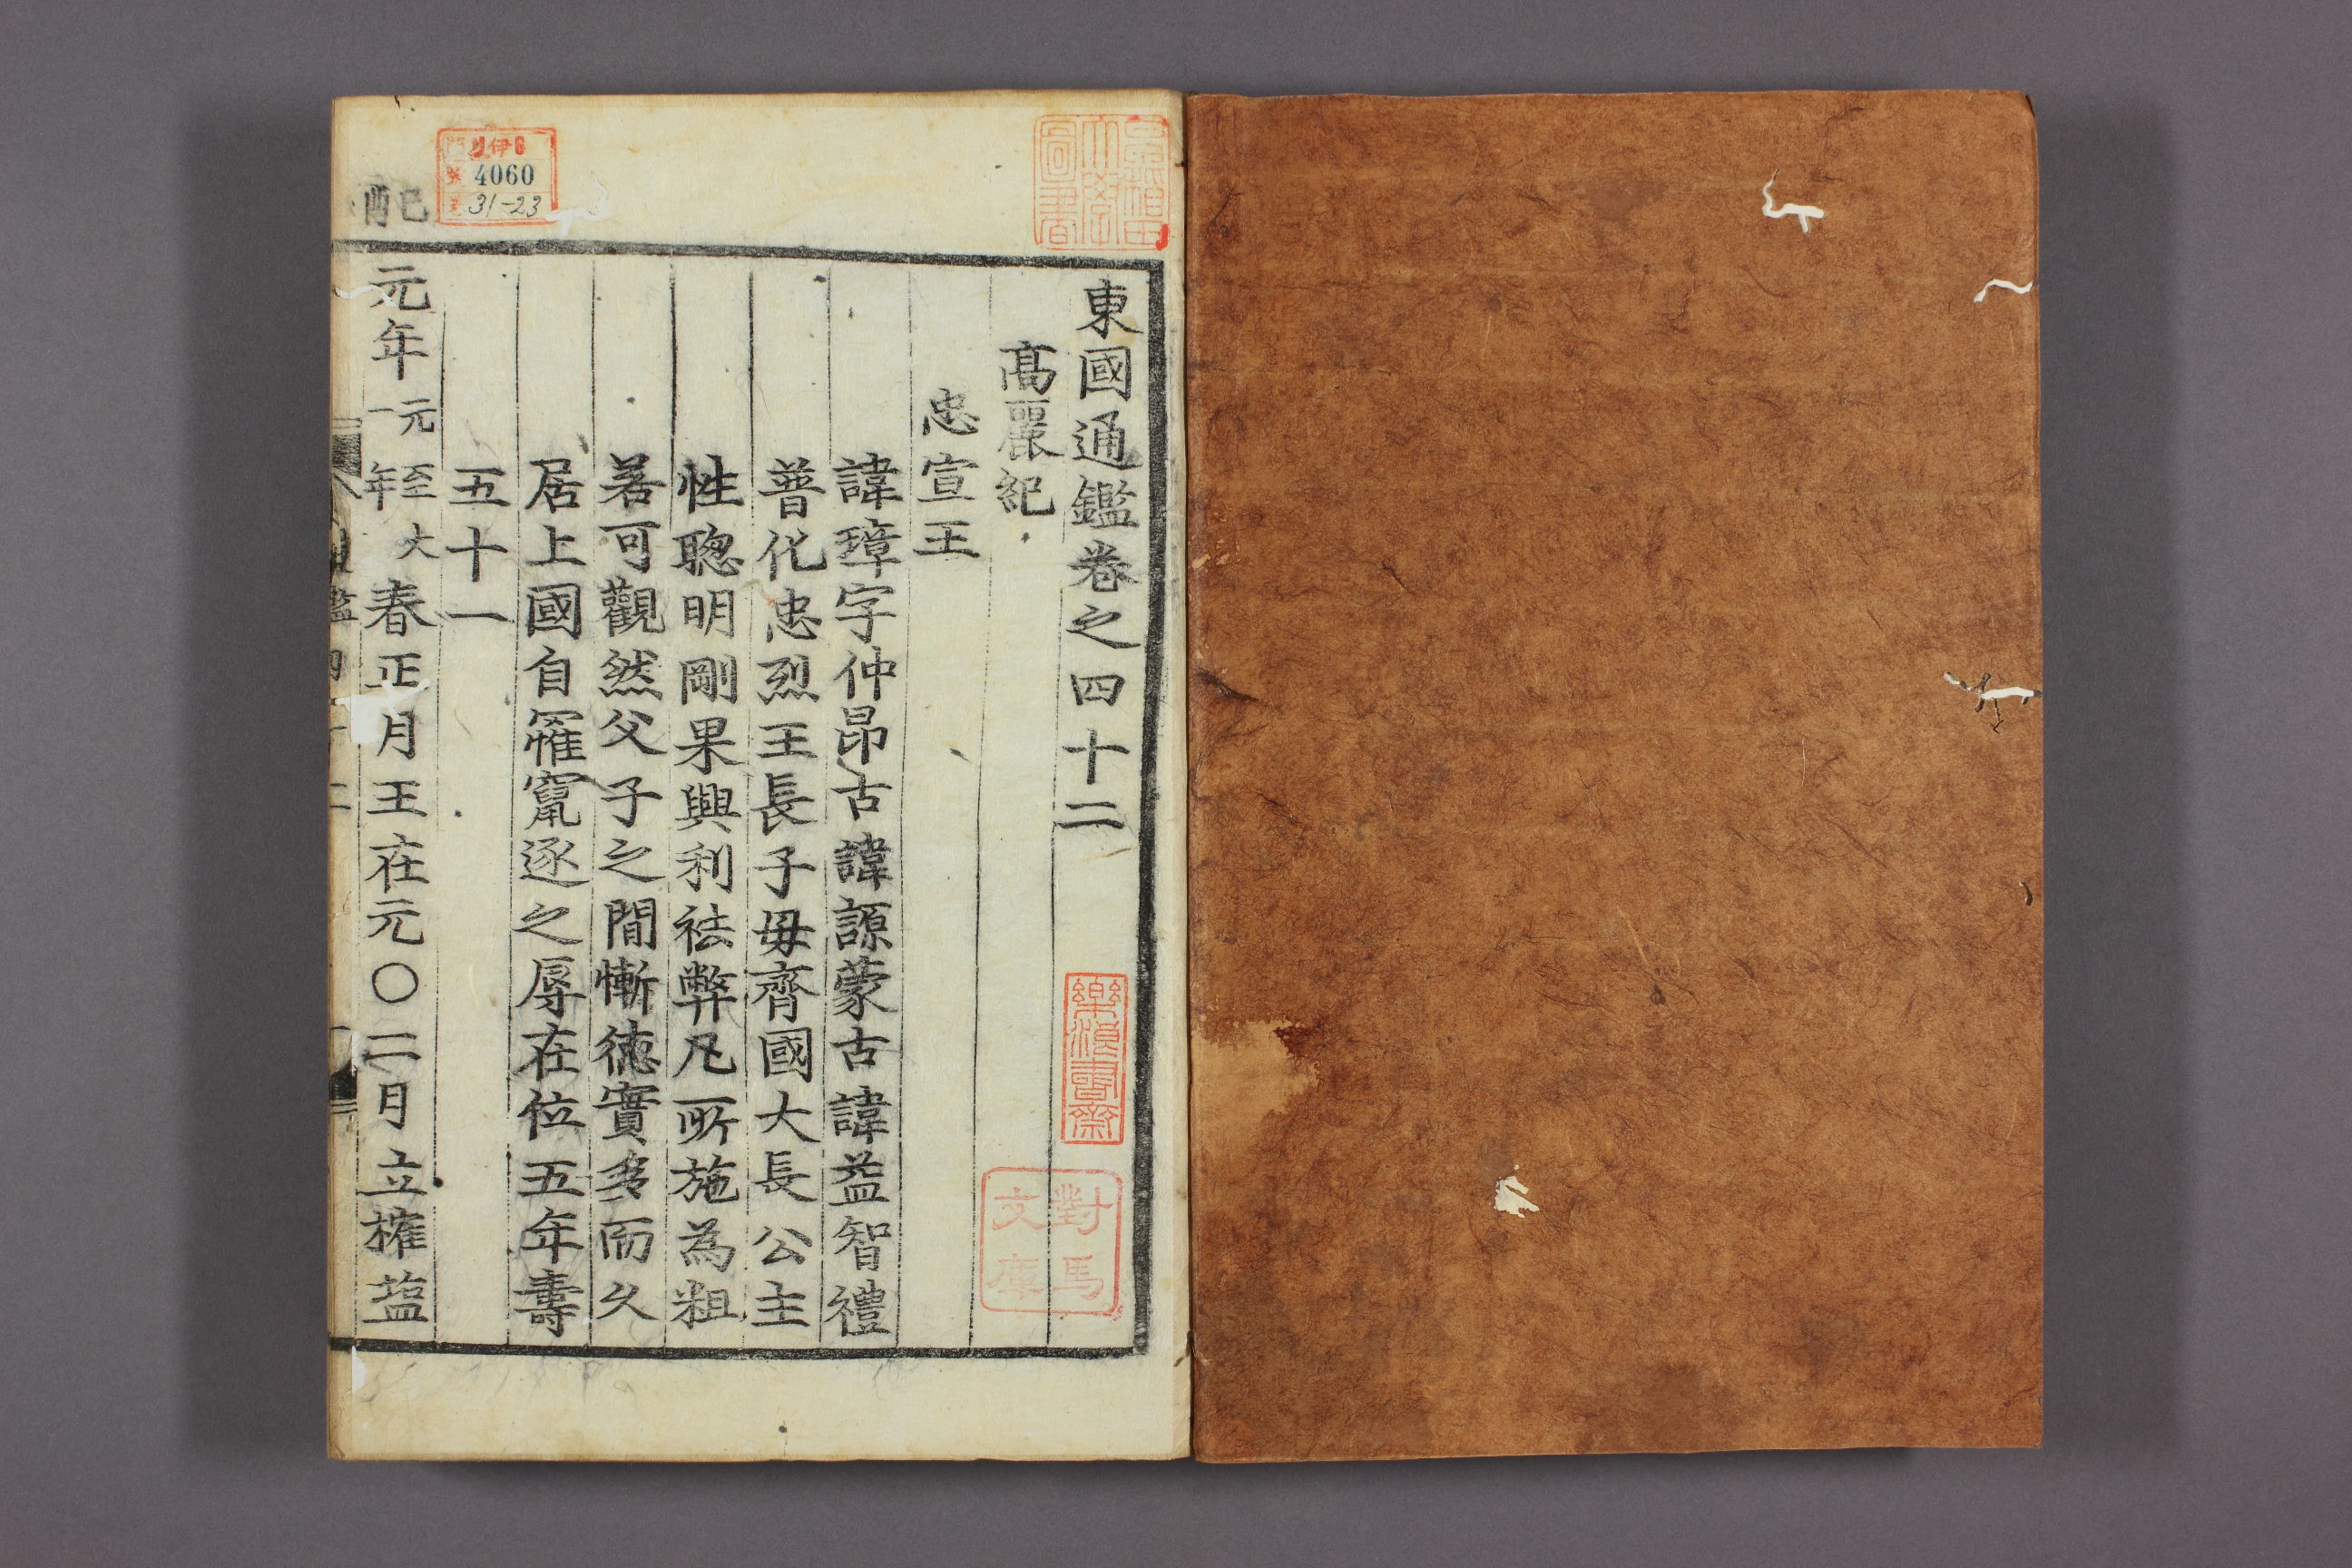 東國通鑑卷之四十二
高麗紀
忠宣王
諱璋字仲昻古諱謜蒙古諱益智禮
普化忠烈王長子毋齊國大長公主
性聦明剛果興利祛弊凡所施為粗
若可觀然父子之間慚德實多而久
居上國自罹竄逐之辱在位五年壽
五十一
己酉
元年元至大一年春正月王在元○二月立㩁塩
伊6
4060
31-23
樂浪書齋
對馬
文庫